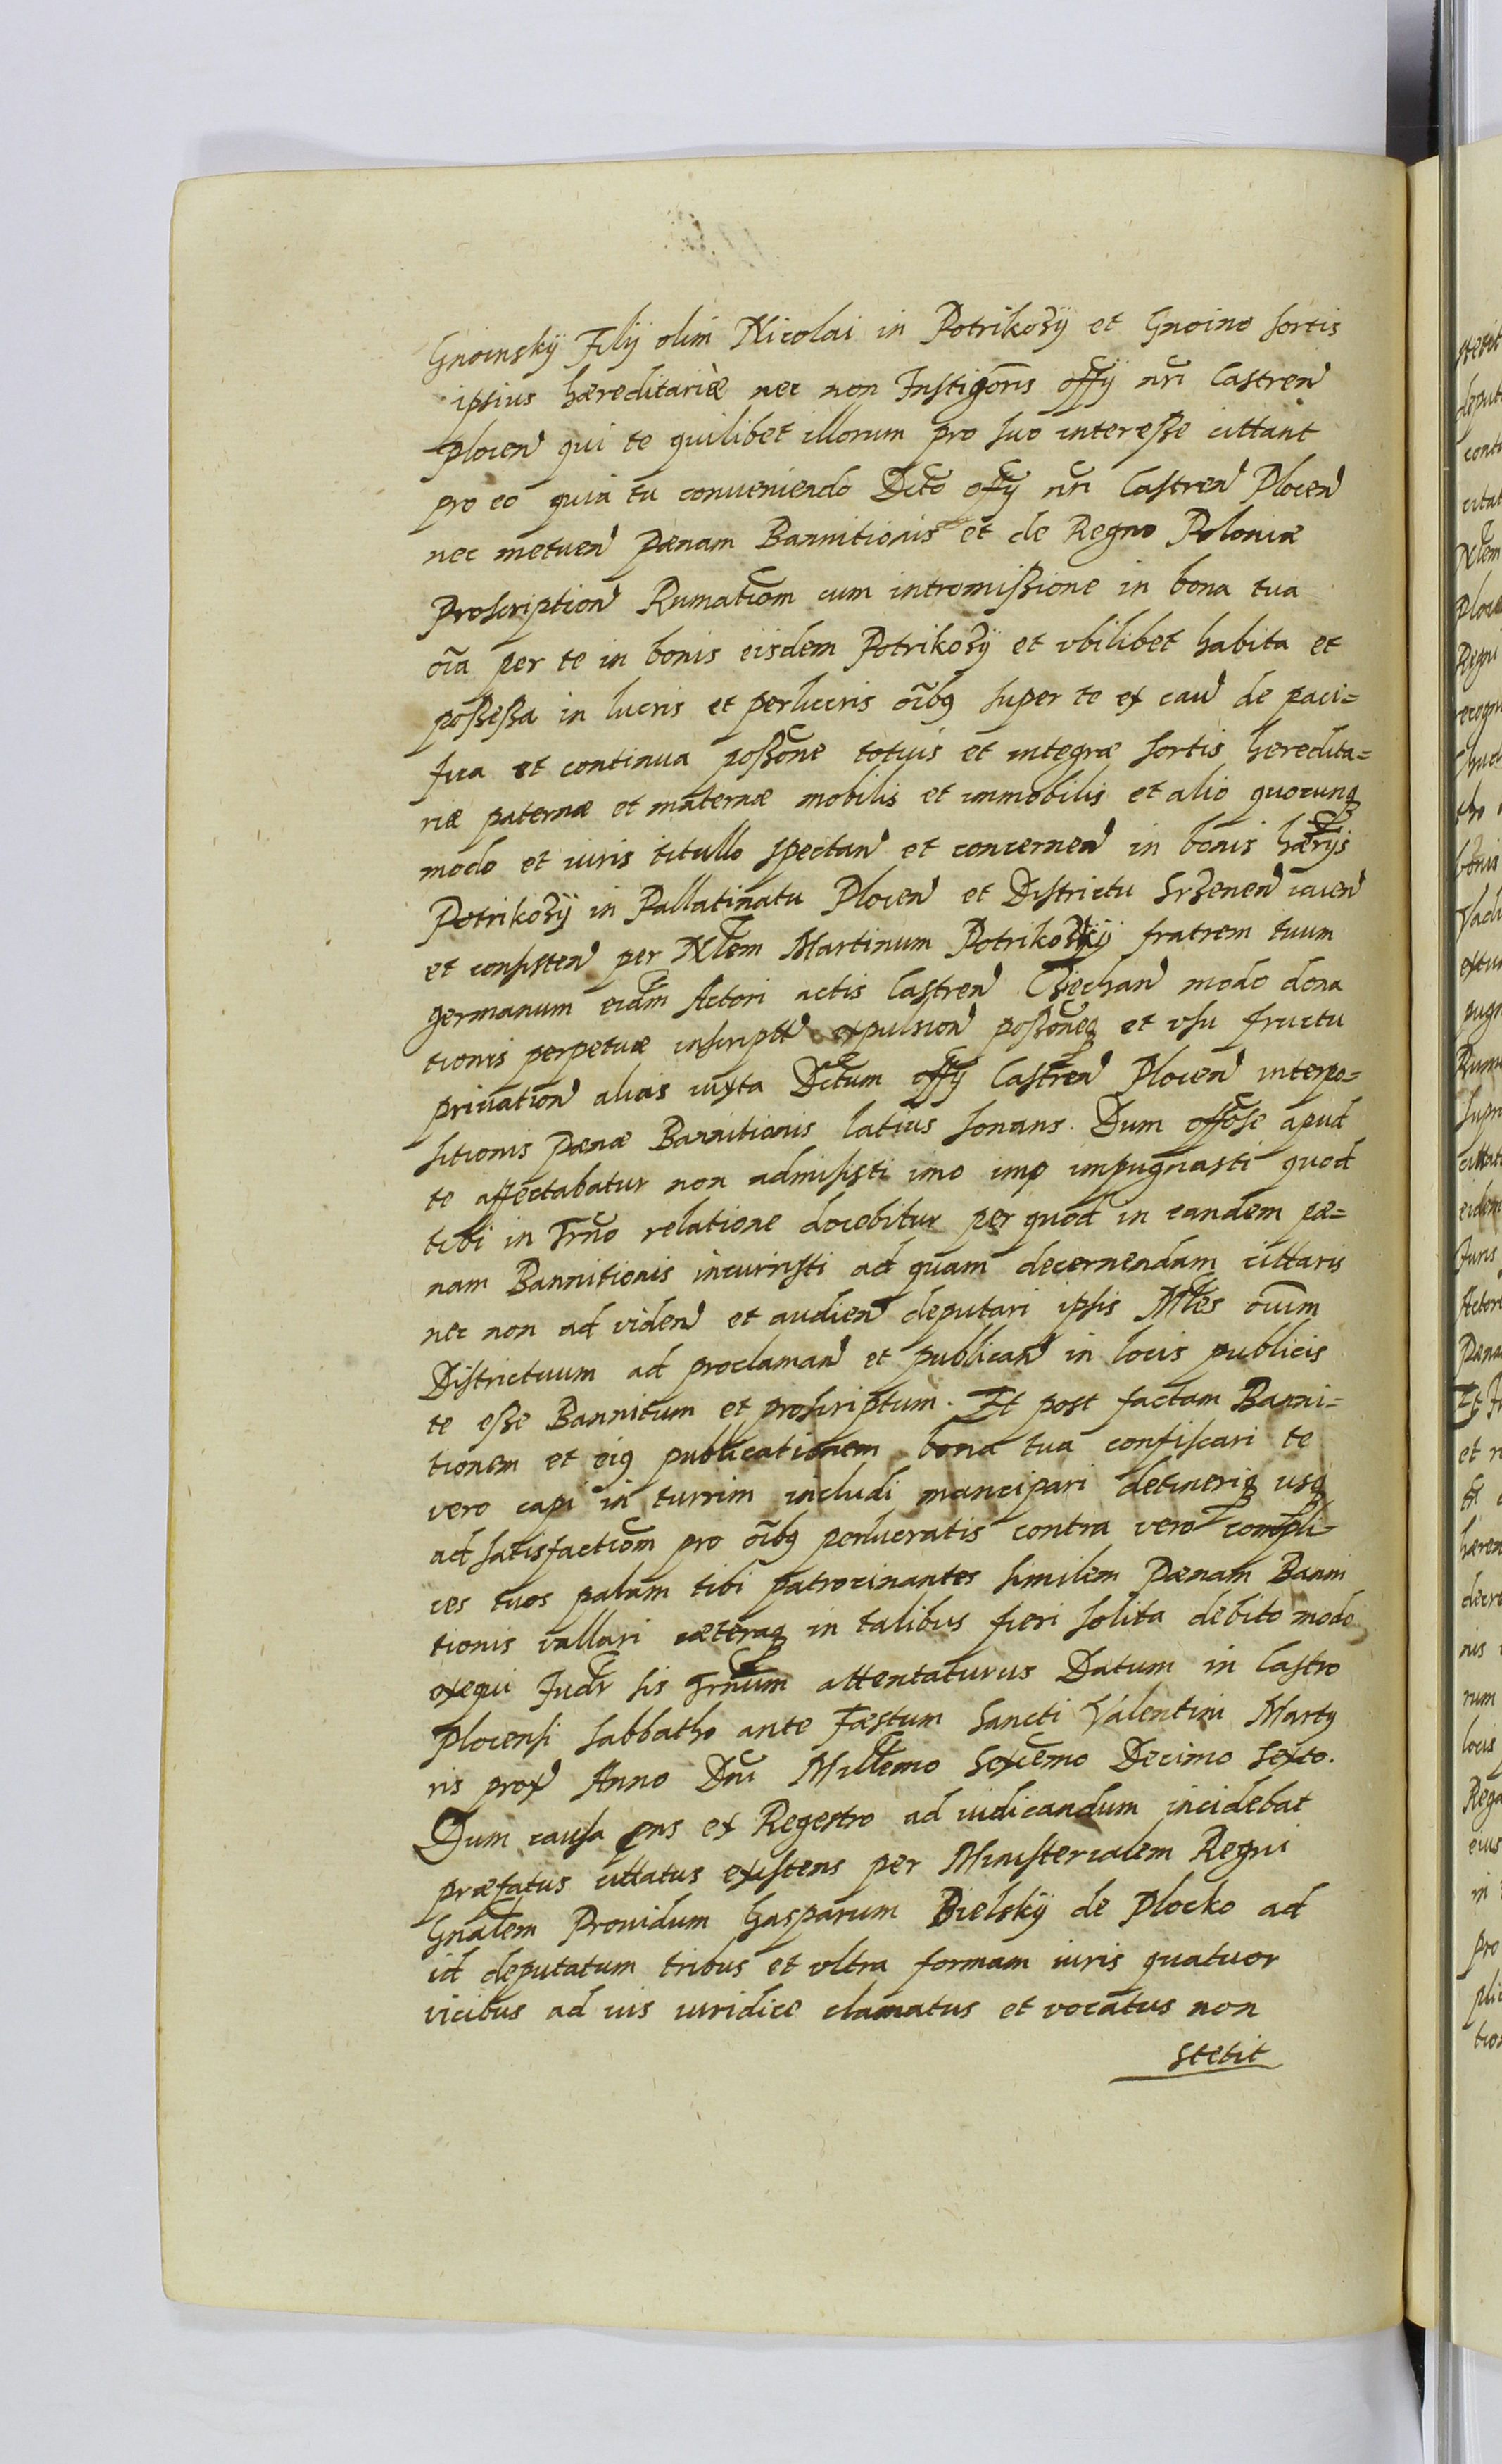 Gnoinskÿ Filÿ olim Nicolai in Potrikozÿ et Gnoino sortis
ipsius hæreditariæ nec non Instigoris offÿ nri Castren
plocen qui te quilibet illorum pro suo interesse cittant
pro eo quia tu conveniendo Dcto offÿ nri Castren Plocen
nec metuen pænam Bannitionis et de Regno Poloniæ
Proscription Rumatiom cum intromissione in bona tua
oia per te in bonis eisdem Potrikozÿ et vbilibet habita et
possessa in lucris et perlucris oibq super te ex cau de paci=
fica et continua possone totuis et integræ sortis heredita=
riæ paternæ et maternæ mobilis et immobilis et alio quocunq
modo et iuris titullo spectan et concernen in bonis hærijs
Potrikozÿ in Pallatinatu Plocen et Districtu Srzenen iacen
et consisten per Nlem Martinum Potrikozkÿ fratrem tuum
germanum eidm Actori actis Castren Cziechan modo dona
tionis perpetuæ inscriptt expulsion possoneq et vsu fructu
priuation alias iuxta Dctum offÿ Castren Plocen interpo=
sitionis pænæ Bannitionis latius sonans. Dum offose apud
te affectabatur non admisisti imo imp impugnasti quod
tibi in Trno relatione docebitur per quod in eandem pæ=
nam Bannitionis incurristi ad quam decernendam cittaris
nec non ad viden et audien deputari ipsis Mles oium
Districtuum ad proclaman et publican in locis publicis
te esse Bannitum et proscriptum. Et post factam Banni=
tionem et eiq publicationem bona tua confiscari te
vero capi in turrim includi mancipari detineriq usq
ad satisfactiom pro oibq perlucratis contra vero compli=
ces tuos palam tibi patrocinantes similem pænam Banni
tionis vallari cæteraq in talibus fieri solita debito modo
exequi Judr sis Trnum attentaturus Datum in Castro
Plocensi sabbatho ante Fæstum Sancti Valentini Marty
ris prox Anno Dni Millemo Sexcemo Decimo Sexto.
Dum causa pns ex Regestro ad iudicandum incidebat
præfatus cittatus existens per Ministerialem Regni
Gnalem Prouidum Gasparum Bielskÿ de Plocko ad
id deputatum tribus et vltra formam iuris quatuor
vicibus ad ius iuridice clamatus et vocatus non
stetit